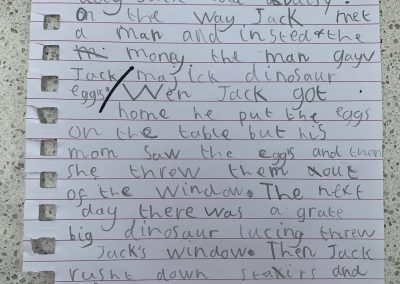 On the way Jack met
a man and insted of the
money the man gayv
Jack majick dinosaur
eggs. Wen Jack got
home he put the eggs
on the table but his
mom saw the eggs and then
she threw them out
of the window. The next
day there was a grate
big dinosaur lucing threw
Jack's window. Then Jack
rusht down stairs and